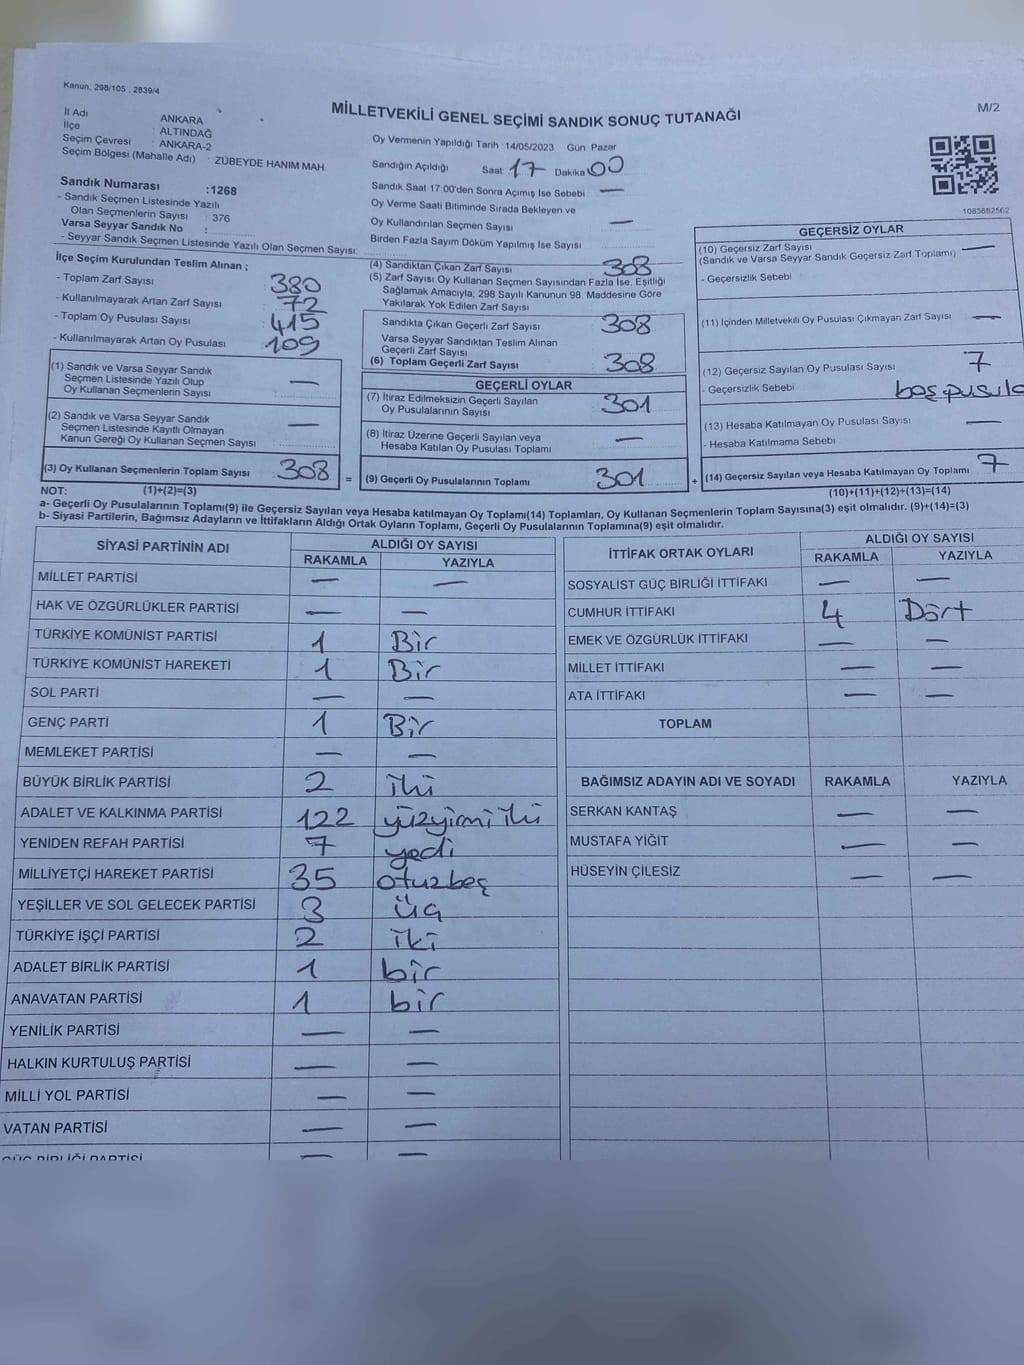 Kanun, 298/105 , 2839/4
MİLLETVEKİLİ GENEL SEÇİMİ SANDIK SONUÇ TUTANAĞI
M/2
İl Adı : ANKARA
İlçe : ALTINDAĞ
Seçim Çevresi : ANKARA-2
Seçim Bölgesi (Mahalle Adı) : ZÜBEYDE HANIM MAH.
Sandık Numarası :1268
- Sandık Seçmen Listesinde Yazılı
Olan Seçmenlerin Sayısı : 376
Varsa Seyyar Sandık No :
- Seyyar Sandık Seçmen Listesinde Yazılı Olan Seçmen Sayısı:
Oy Vermenin Yapıldığı Tarih :14/05/2023 Gün: Pazar
Sandığın Açıldığı Saat 17 Dakika 00
Sandık Saat 17:00'den Sonra Açımış İse Sebebi —
Oy Verme Saati Bitiminde Sırada Bekleyen ve
Oy Kullandırılan Seçmen Sayısı —
Birden Fazla Sayım Döküm Yapılmış İse Sayısı
1085682562
İlçe Seçim Kurulundan Teslim Alınan ;
- Toplam Zarf Sayısı : 380
- Kullanılmayarak Artan Zarf Sayısı : 72
- Toplam Oy Pusulası Sayısı : 415
- Kullanılmayarak Artan Oy Pusulası : 109
(1) Sandık ve Varsa Seyyar Sandık
Seçmen Listesinde Yazılı Olup
Oy Kullanan Seçmenlerin Sayısı : —
(2) Sandık ve Varsa Seyyar Sandık
Seçmen Listesinde Kayıtlı Olmayan
Kanun Gereği Oy Kullanan Seçmen Sayısı : —
(3) Oy Kullanan Seçmenlerin Toplam Sayısı : 308
(1)+(2)=(3)
(4) Sandıktan Çıkan Zarf Sayısı : 308
(5) Zarf Sayısı Oy Kullanan Seçmen Sayısından Fazla İse, Eşitliği
Sağlamak Amacıyla, 298 Sayılı Kanunun 98. Maddesine Göre
Yakılarak Yok Edilen Zarf Sayısı
Sandıkta Çıkan Geçerli Zarf Sayısı : 308
Varsa Seyyar Sandıktan Teslim Alınan
Geçerli Zarf Sayısı
(6) Toplam Geçerli Zarf Sayısı : 308
GEÇERLİ OYLAR
(7) İtiraz Edilmeksizin Geçerli Sayılan
Oy Pusulalarının Sayısı : 301
(8) İtiraz Üzerine Geçerli Sayılan veya
Hesaba Katılan Oy Pusulası Toplamı : —
= (9) Geçerli Oy Pusulalarının Toplamı : 301
GEÇERSİZ OYLAR
(10) Geçersiz Zarf Sayısı —
(Sandık ve Varsa Seyyar Sandık Geçersiz Zarf Toplamı)
- Geçersizlik Sebebi
(11) İçinden Milletvekili Oy Pusulası Çıkmayan Zarf Sayısı : —
(12) Geçersiz Sayılan Oy Pusulası Sayısı : 7
- Geçersizlik Sebebi : boş pusula
(13) Hesaba Katılmayan Oy Pusulası Sayısı : —
- Hesaba Katılmama Sebebi
+ (14) Geçersiz Sayılan veya Hesaba Katılmayan Oy Toplamı : 7
(10)+(11)+(12)+(13)=(14)
NOT:
a- Geçerli Oy Pusulalarının Toplamı(9) ile Geçersiz Sayılan veya Hesaba katılmayan Oy Toplamı(14) Toplamları, Oy Kullanan Seçmenlerin Toplam Sayısına(3) eşit olmalıdır. (9)+(14)=(3)
b- Siyasi Partilerin, Bağımsız Adayların ve İttifakların Aldığı Ortak Oyların Toplamı, Geçerli Oy Pusulalarının Toplamına(9) eşit olmalıdır.
SİYASİ PARTİNİN ADI ALDIĞI OY SAYISI
RAKAMLA YAZIYLA
MİLLET PARTİSİ — —
HAK VE ÖZGÜRLÜKLER PARTİSİ — —
TÜRKİYE KOMÜNİST PARTİSİ 1 Bir
TÜRKİYE KOMÜNİST HAREKETİ 1 Bir
SOL PARTİ — —
GENÇ PARTİ 1 Bir
MEMLEKET PARTİSİ — —
BÜYÜK BİRLİK PARTİSİ 2 iki
ADALET VE KALKINMA PARTİSİ 122 yüzyirmi iki
YENİDEN REFAH PARTİSİ 7 yedi
MİLLİYETÇİ HAREKET PARTİSİ 35 otuzbeş
YEŞİLLER VE SOL GELECEK PARTİSİ 3 üç
TÜRKİYE İŞÇİ PARTİSİ 2 iki
ADALET BİRLİK PARTİSİ 1 bir
ANAVATAN PARTİSİ 1 bir
YENİLİK PARTİSİ — —
HALKIN KURTULUŞ PARTİSİ — —
MİLLİ YOL PARTİSİ — —
VATAN PARTİSİ — —
GÜÇ BİRLİĞİ PARTİSİ — —
İTTİFAK ORTAK OYLARI ALDIĞI OY SAYISI
RAKAMLA YAZIYLA
SOSYALİST GÜÇ BİRLİĞİ İTTİFAKI — —
CUMHUR İTTİFAKI 4 Dört
EMEK VE ÖZGÜRLÜK İTTİFAKI — —
MİLLET İTTİFAKI — —
ATA İTTİFAKI — —
TOPLAM
BAĞIMSIZ ADAYIN ADI VE SOYADI RAKAMLA YAZIYLA
SERKAN KANTAŞ — —
MUSTAFA YİĞİT — —
HÜSEYİN ÇİLESİZ — —